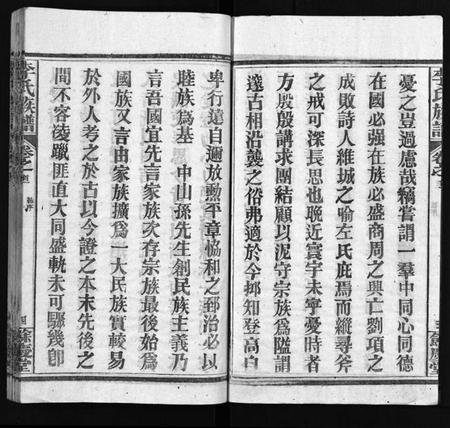 李氏族譜
卷之
憂之豈過慮哉竊嘗謂一羣中同心同德
在國必強在族必盛商周之興亡劉項之
成敗詩人維城之喻左氏庇焉而縱尋斧
之戒可深長思也晚近寰宇未寧憂時者
方殷殷講求團結顧以泥守宗族為隘謂
邃古相沿襲之俗弗適於今抑知登高自
餘慶堂
卑行遠自邇放勳平章恊和之郅治必以
睦族為基 中山孫先生創民族主義乃
言吾國宜先言家族次存宗族最後始為
國族又言由家族擴為一大民族實較易
於外人考之於古以今證之本末先後之
間不容凌躐匪直大同盛軌未可驟幾即
李氏族譜
卷之
四
餘慶堂